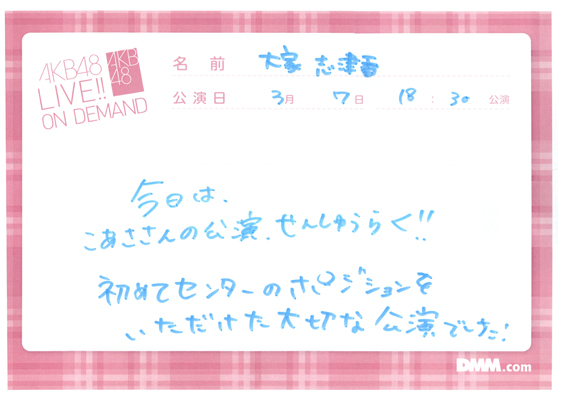 AKB48
LIVE!!
ON DEMAND
AKB
48
名前 大家 志津香
公演日 3月 7日 18:30 公演
今日は、
こあささんの公演、せんしゅうらく!!
初めてセンターのポジションを
いただけた大切な公演でした!
DMM.com